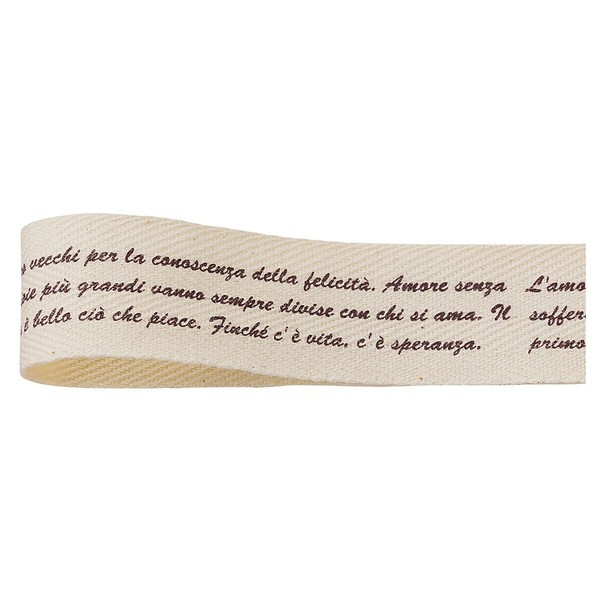 vecchi per la conoscenza della felicità. Amore senza L'amo
gie più grandi vanno sempre divise con chi si ama. Il soffer
è bello ciò che piace. Finché c'è vita, c'è speranza. primo